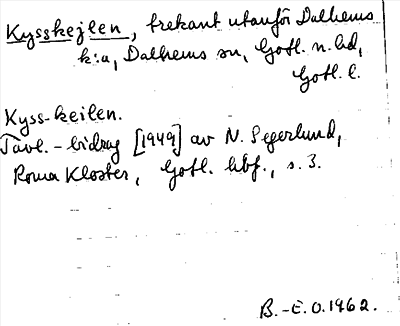 Kysskejlen, trekant utanför Dalhems
k:a, Dalhems sn, Gotl. n. hd,
Gotl. l.
Kyss-keilen.
Tävl.-bidrag [1949] av N. Segerlund,
Roma Kloster, Gotl. hbf., s. 3.
B.-E. O. 1962.